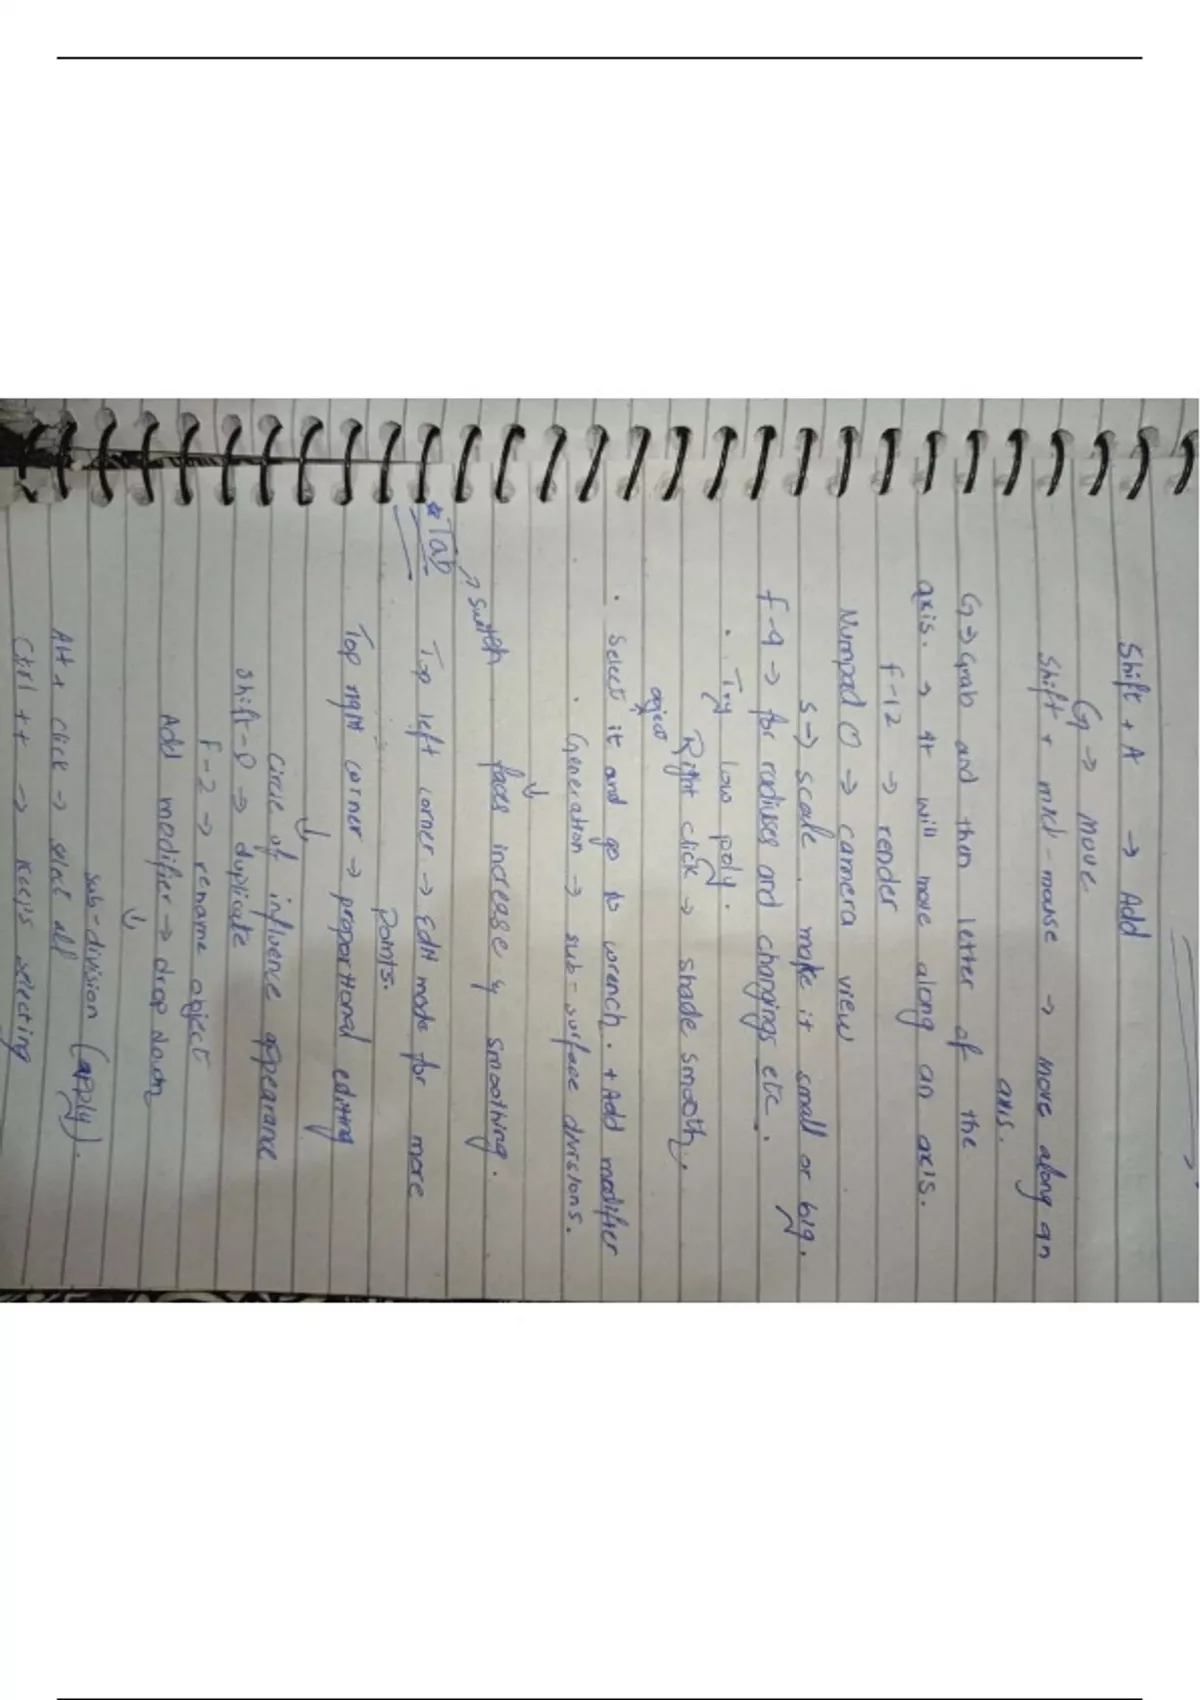 Shift + A → Add
G → move
Shift + mid-mouse → move along an
axis.
G → Grab and then letter of the
axis. → it will move along an axis.
f-12 → render
Numpad 0 → camera view
s → scale . make it small or big.
f-9 → for radiuses and changings etc.
. Try low poly.
Right click → shade smooth.
object
. Select it and go to wrench. + Add modifier
. Generation → sub-surface divisions.
↓
faces increase & smoothing.
switch
* Tab
Top left corner → Edit mode for more
Points.
Top right corner → proportional editing
↓
Circle of influence appearance
Shift-D → duplicate
F-2 → rename object
Add modifier → drop down
↓
sub-division (apply).
Alt + click → select all
Ctrl ++ → keeps selecting